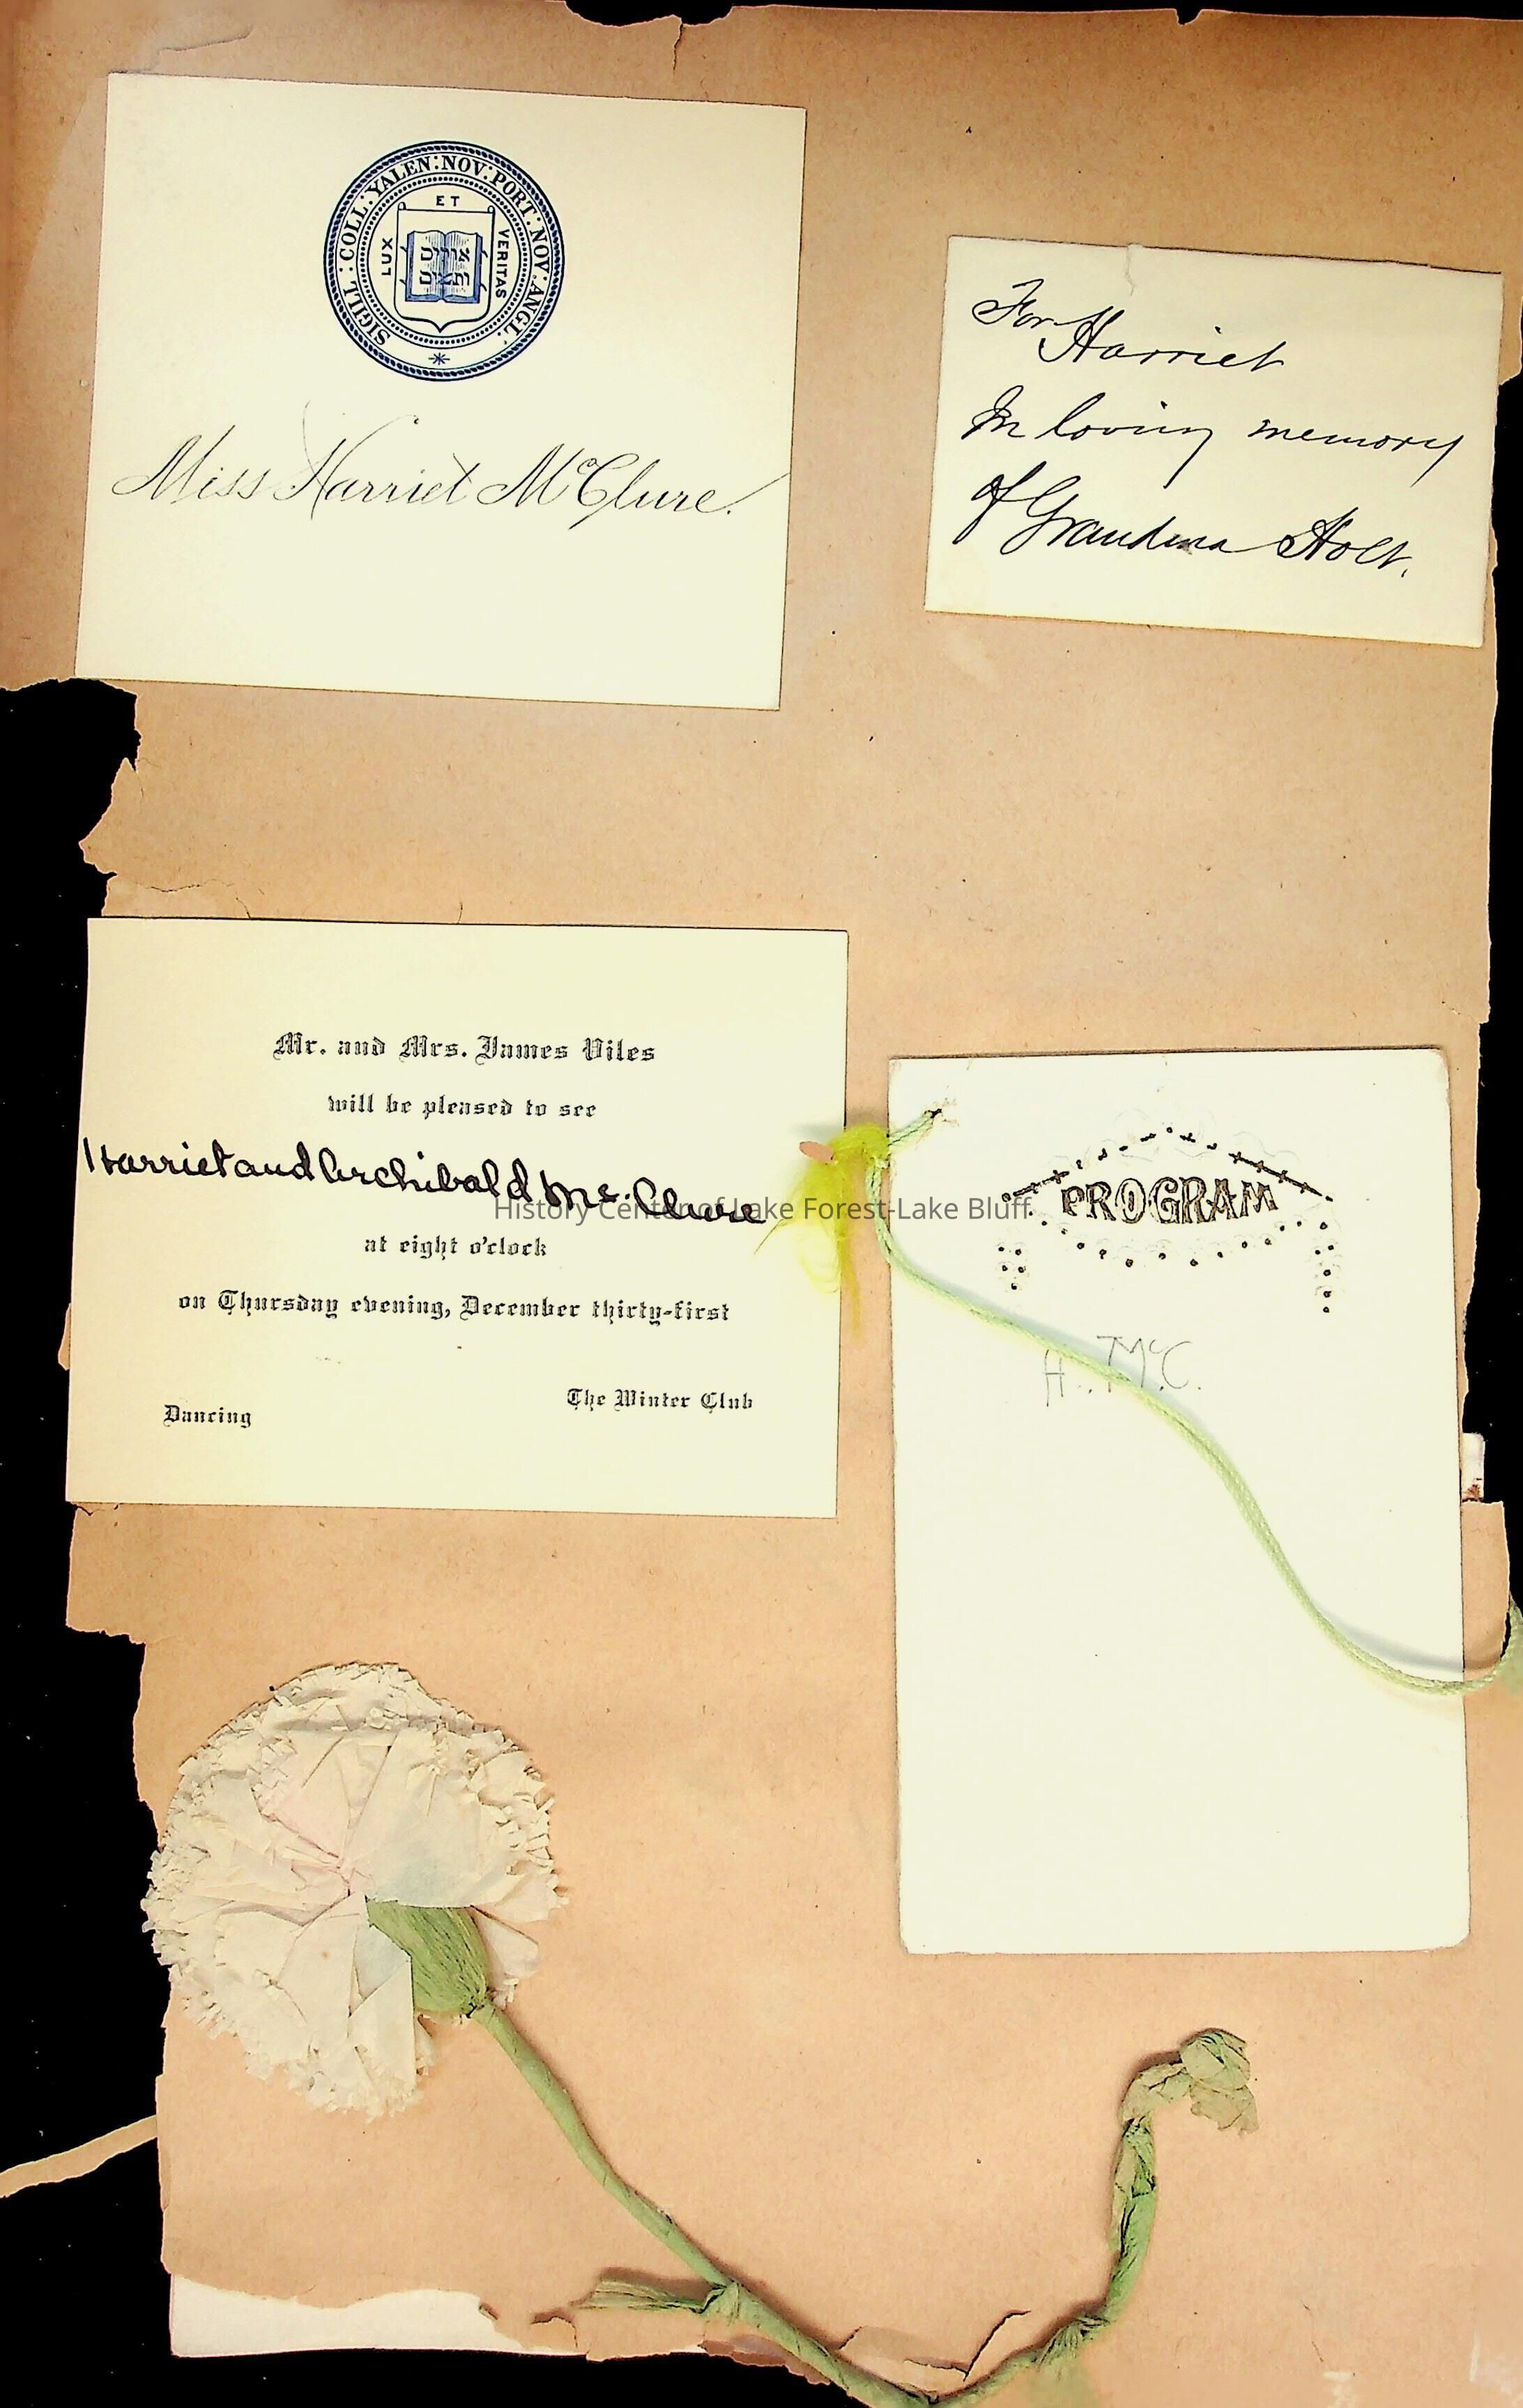 SIGILL : COLL : YALEN : NOV : PORT : NOV : ANGL :
ET
LUX
VERITAS
אורים
ותמים
Miss Harriet McClure.
For
Harriet
In loving memory
of Grandma Holt.
Mr. and Mrs. James Viles
will be pleased to see
Harriet and Archibald Mc. Clure
at eight o'clock
on Thursday evening, December thirty-first
The Winter Club
Dancing
PROGRAM
H. McC.
History Center of Lake Forest-Lake Bluff